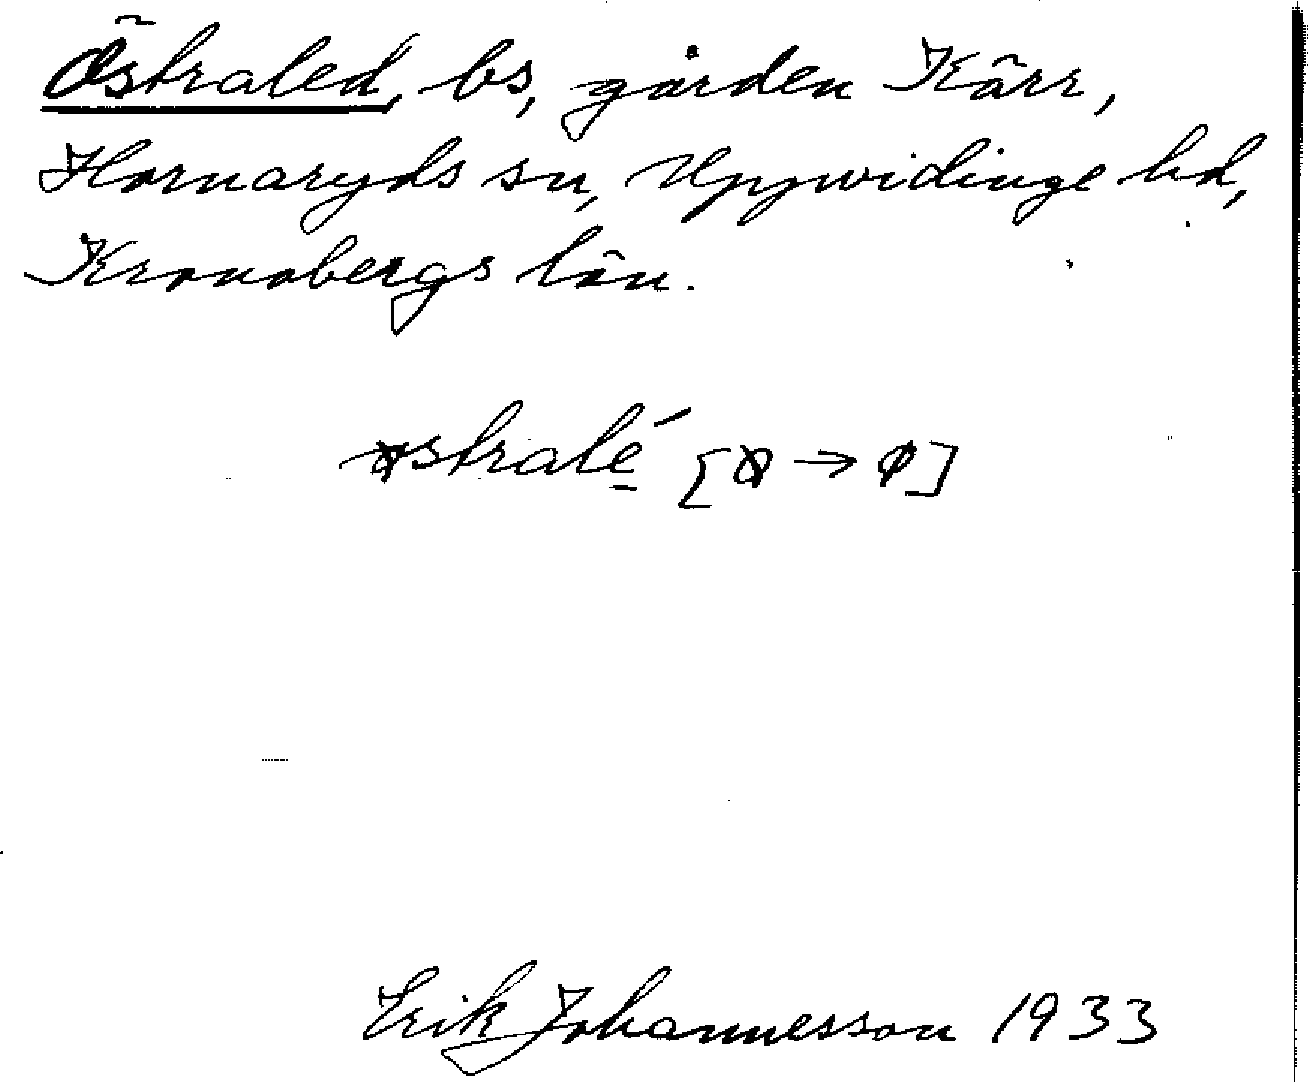 Östraled, bs, gården Kärr,
Hornaryds sn, Uppvidinge hd,
Kronobergs län.
Erik Johannesson 1933